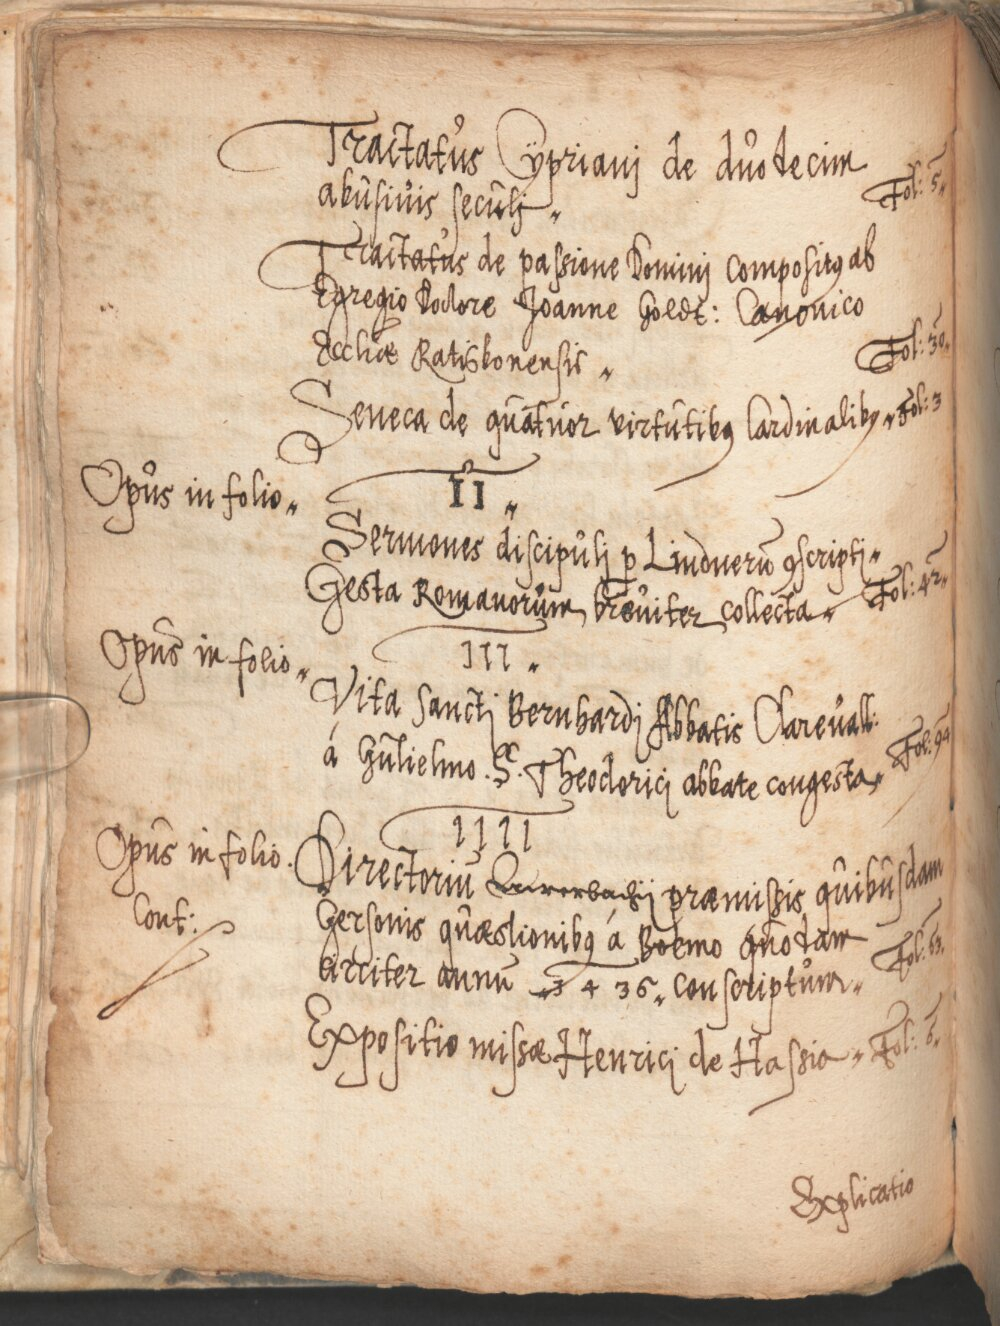 Tractatus Cypriani de duodecim
abusivis seculi „ Fol: 5„
Tractatus de passione Domini compositꝯ ab
Egregio Doctore Joanne Goldt: Canonico
Eccliæ Ratisbonensis „ Fol: 30„
Seneca de quatuor virtutibꝯ Cardinalibꝯ „ Fol: 3
Opus in folio „ II „
Sermones discipuli ꝑ Lindnerū ꝯscripti „
Gesta Romanorum breviter collecta „ Fol: 42„
Opus in folio „ III „
Vita Sancti Bernhardi Abbatis Clarevall:
á Gulielmo .S. Theodorici abbate congesta„ Fol: 94
IIII
Opus in folio. Directoriū præmissis quibusdam
Cont: Gersonis quæstionibꝯ á Boemo quodam
circiter annū „ 1436„ conscriptum„ Fol: 63.
Expositio missæ Henrici de Hassia „ Fol: 6„
Explicatio